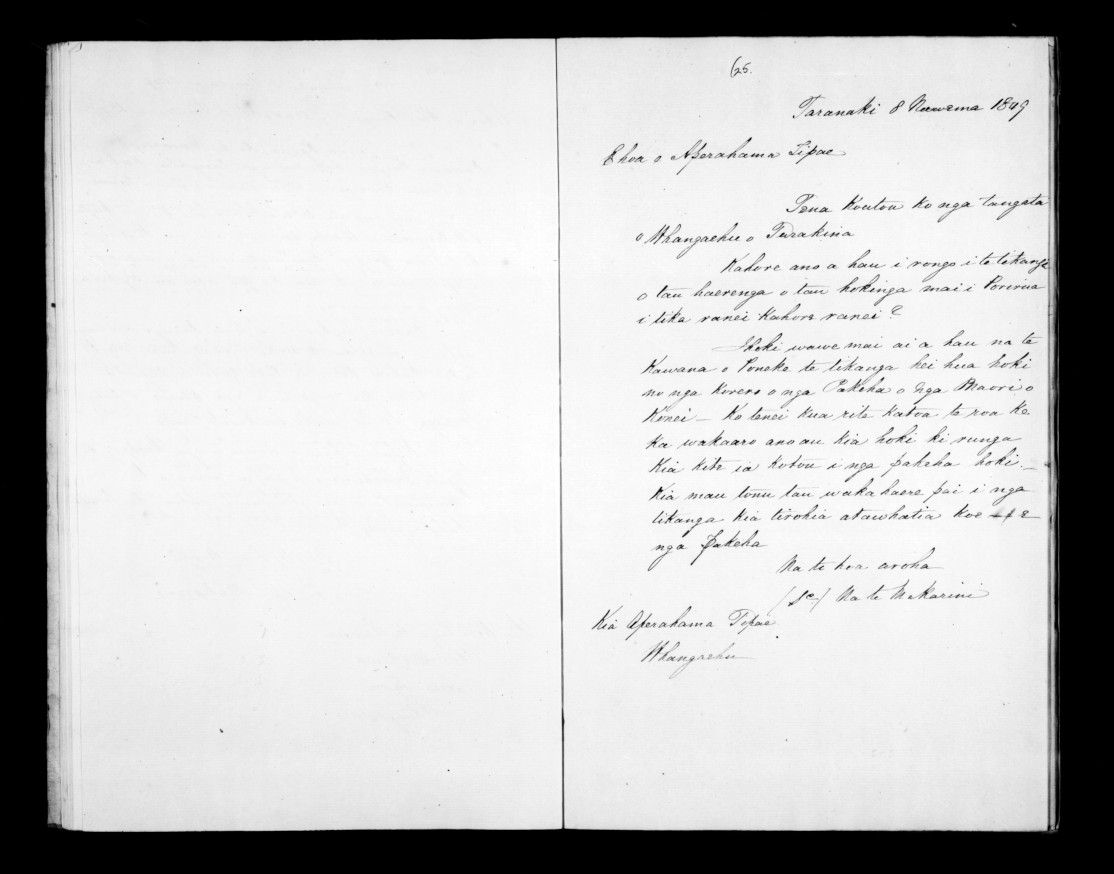 65.
Taranaki 8 Nowema 1849
E hoa o Aperahama Tipae
Tena Koutou ko nga tangata
o Whangaehu o Turakina
Kahore ano a hau i rongo i te tikanga
o tau haerenga o tau hokinga mai i Porirua
i tika ranei Kahore ranei?
I hoki wawe mai ai a hau na te
Kawana o Poneke te tikanga hei hua hoki
no nga Korero o nga Pakeha o nga Maori o
Konei — Ko tenei kua rite katoa te roa ke
ka wakaaro ano au kia hoki ki runga
Kia kite ia Kotou i nga pakeha hoki. —
Kia mau tonu tau waka haere pai i nga
tikanga kia tirohia atawhatia koe e
nga pakeha
Na te hoa aroha
Na te Makarini
Kia Aperahama Tipae
Whangaehu